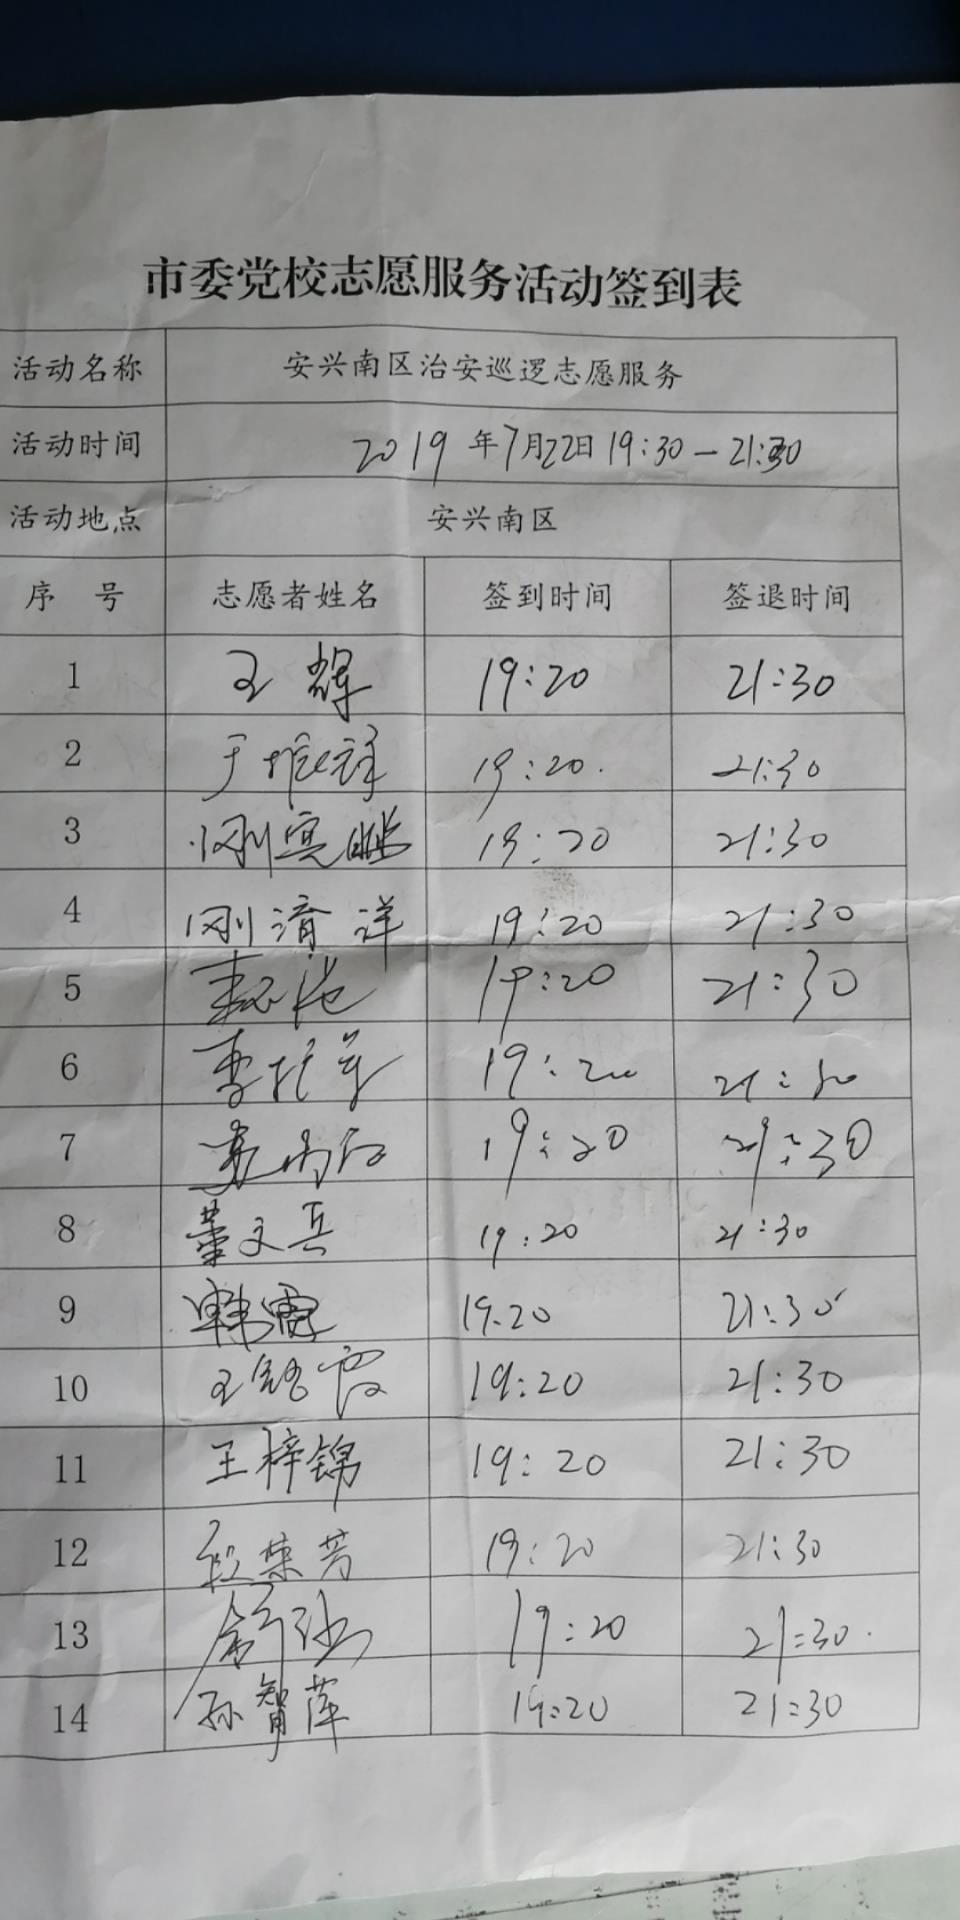 市委党校志愿服务活动签到表
活动名称 安兴南区治安巡逻志愿服务
活动时间 2019年7月22日19:30-21:30
活动地点 安兴南区
序 号 志愿者姓名 签到时间 签退时间
1 王辉 19:20 21:30
2 于 19:20. 21:30
3 刚 19:20 21:30
4 刚清洋 19:20 21:30
5 19:20 21:30
6 李 19:20 21:30
7 19:20 21:30
8 董文兵 19:20 21:30
9 韩雷 19.20 21:30
10 王 霞 19:20 21:30
11 王梓锦 19:20 21:30
12 段荣芳 19:20 21:30
13 19:20 21:30.
14 孙智萍 19:20 21:30